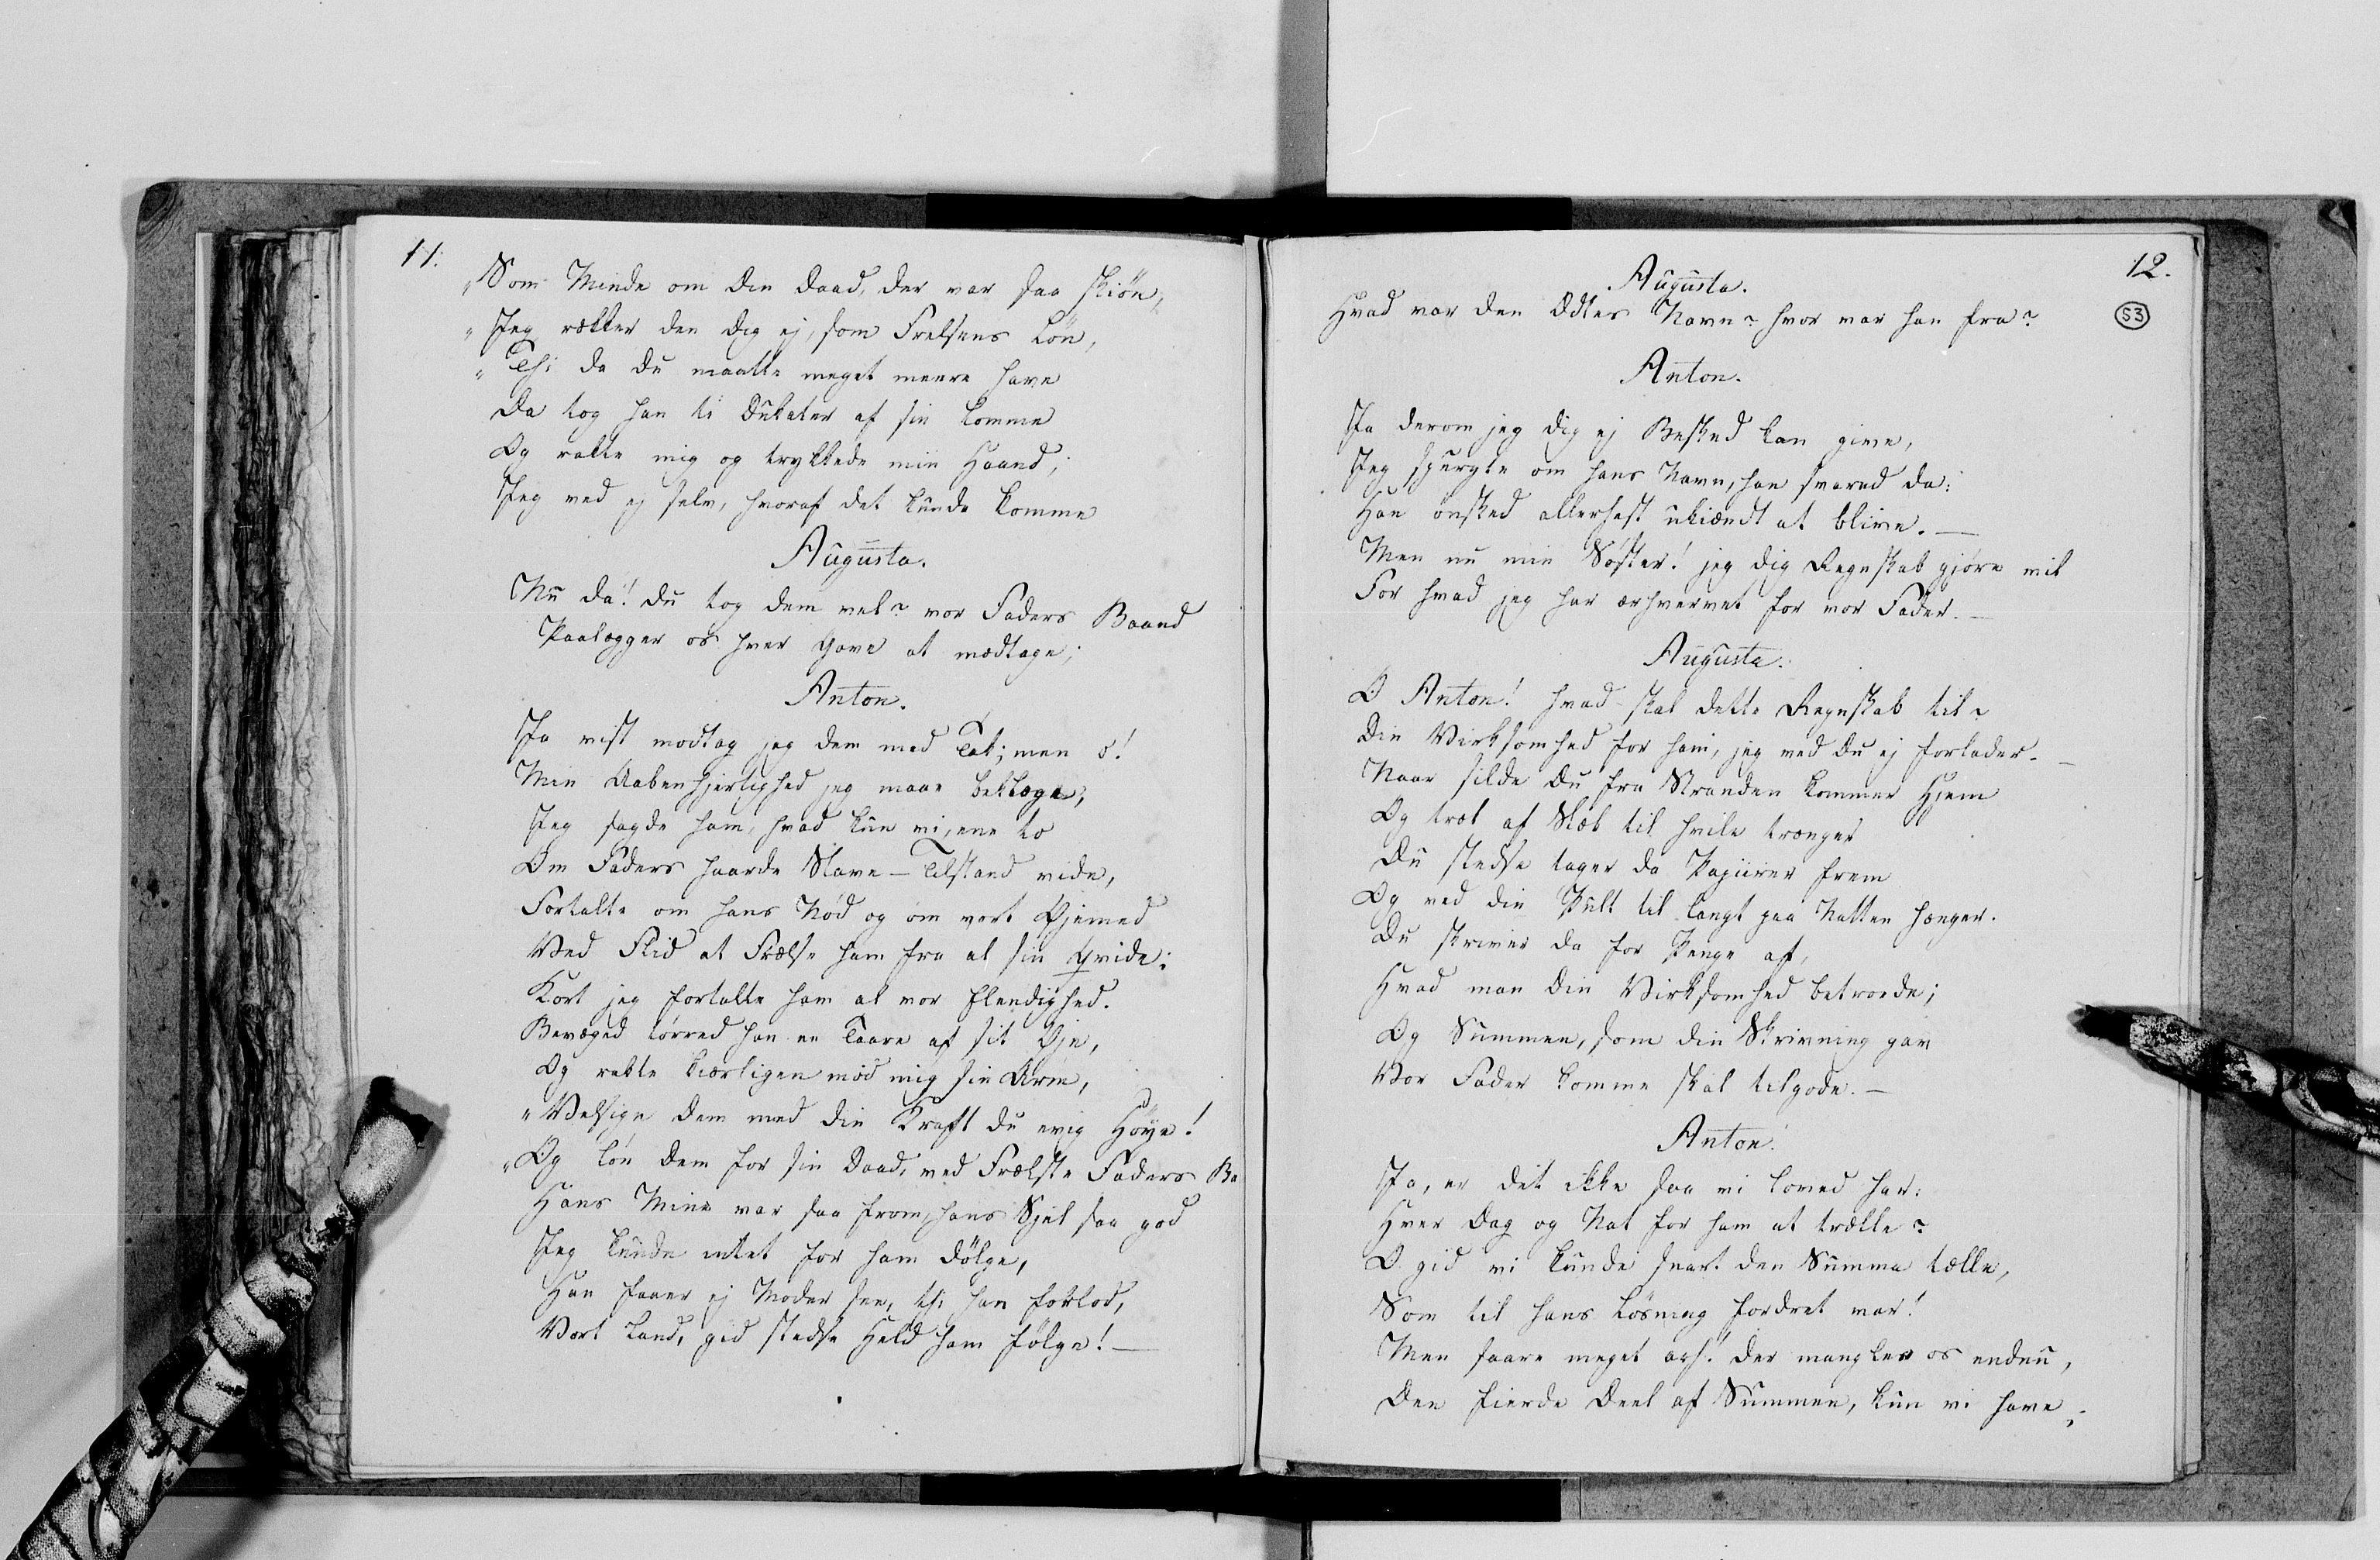 11.
"Som Minde om Din Daad, der var saa skiøn,
"Jeg rækker den Dig ej, som Frelsens Løn,
"Thi da Du maatte meget meere have
Da tog han ti Dukater af sin Lomme
Og rakte mig og trykkede min Haand;
Jeg ved ej selv, hvoraf det kunde komme
Augusta.
Nu da! Du tog dem vel? vor Faders Baand
Paalægger os hver Gave at modtage;
Anton.
Ja vist modtog jeg dem med Tak; men o!
Min Aabenhjertighed jeg maae beklage,
Jeg sagde ham, hvad kun vi, ene to
Om Faders haarde Slave-Tilstand vide,
Fortalte om hans Nød og om vort Øjemed
Ved Flid at Frelse ham fra al sin Qvide;
Kort jeg fortalte ham al vor Elendighed.
Bevæged tørred han en Taare af sit Øje,
Og rakte kiærligen mod mig sin Arm,
"Velsign dem med din Kraft du evig Høye!
"Og løn dem for sin Daad, med Frælste Faders Ba
Hans Mine var saa from, hans Sjel saa god
Jeg kunde intet for ham dølge,
Han faaer ej Moder see, thi han forlod,
Vort Land, gid stedse Held ham følge! —
12.
53
Augusta.
Hvad var den Ædles Navn? hvor var han fra?
Anton.
Ja derom jeg dig ej Besked kan give,
Jeg spurgte om hans Navn, han svared da:
Han ønsked allerhelst ukiændt at blive. —
Men nu min Søster! jeg dig Regnskab gjøre vil
For hvad jeg har erhvervet for vor Fader. —
Augusta.
O Anton! hvad skal dette Regnskab til?
Din Virksomhed for ham, jeg ved Du ej forlader. —
Naar silde Du fra Stranden kommer Hjem
Og træt af Slæb til Hvile trænger
Du stedse tager da Papiirer frem
Og ved din Pult til langt paa Natten hænger.
Du skriver da for Penge af,
Hvad man Din Virksomhed betroede;
Og Summen, som din Skrivning gav
Vor Fader komme skal tilgode. —
Anton.
Ja, er det ikke saa vi loved har:
Hver Dag og Nat for ham at trælle?
O gid vi kunde snart den Summa tælle,
Som til hans Løsning fordret var!
Men saare meget ach! der mangler os endnu,
Den fierde Deel af Summen, kun vi have;